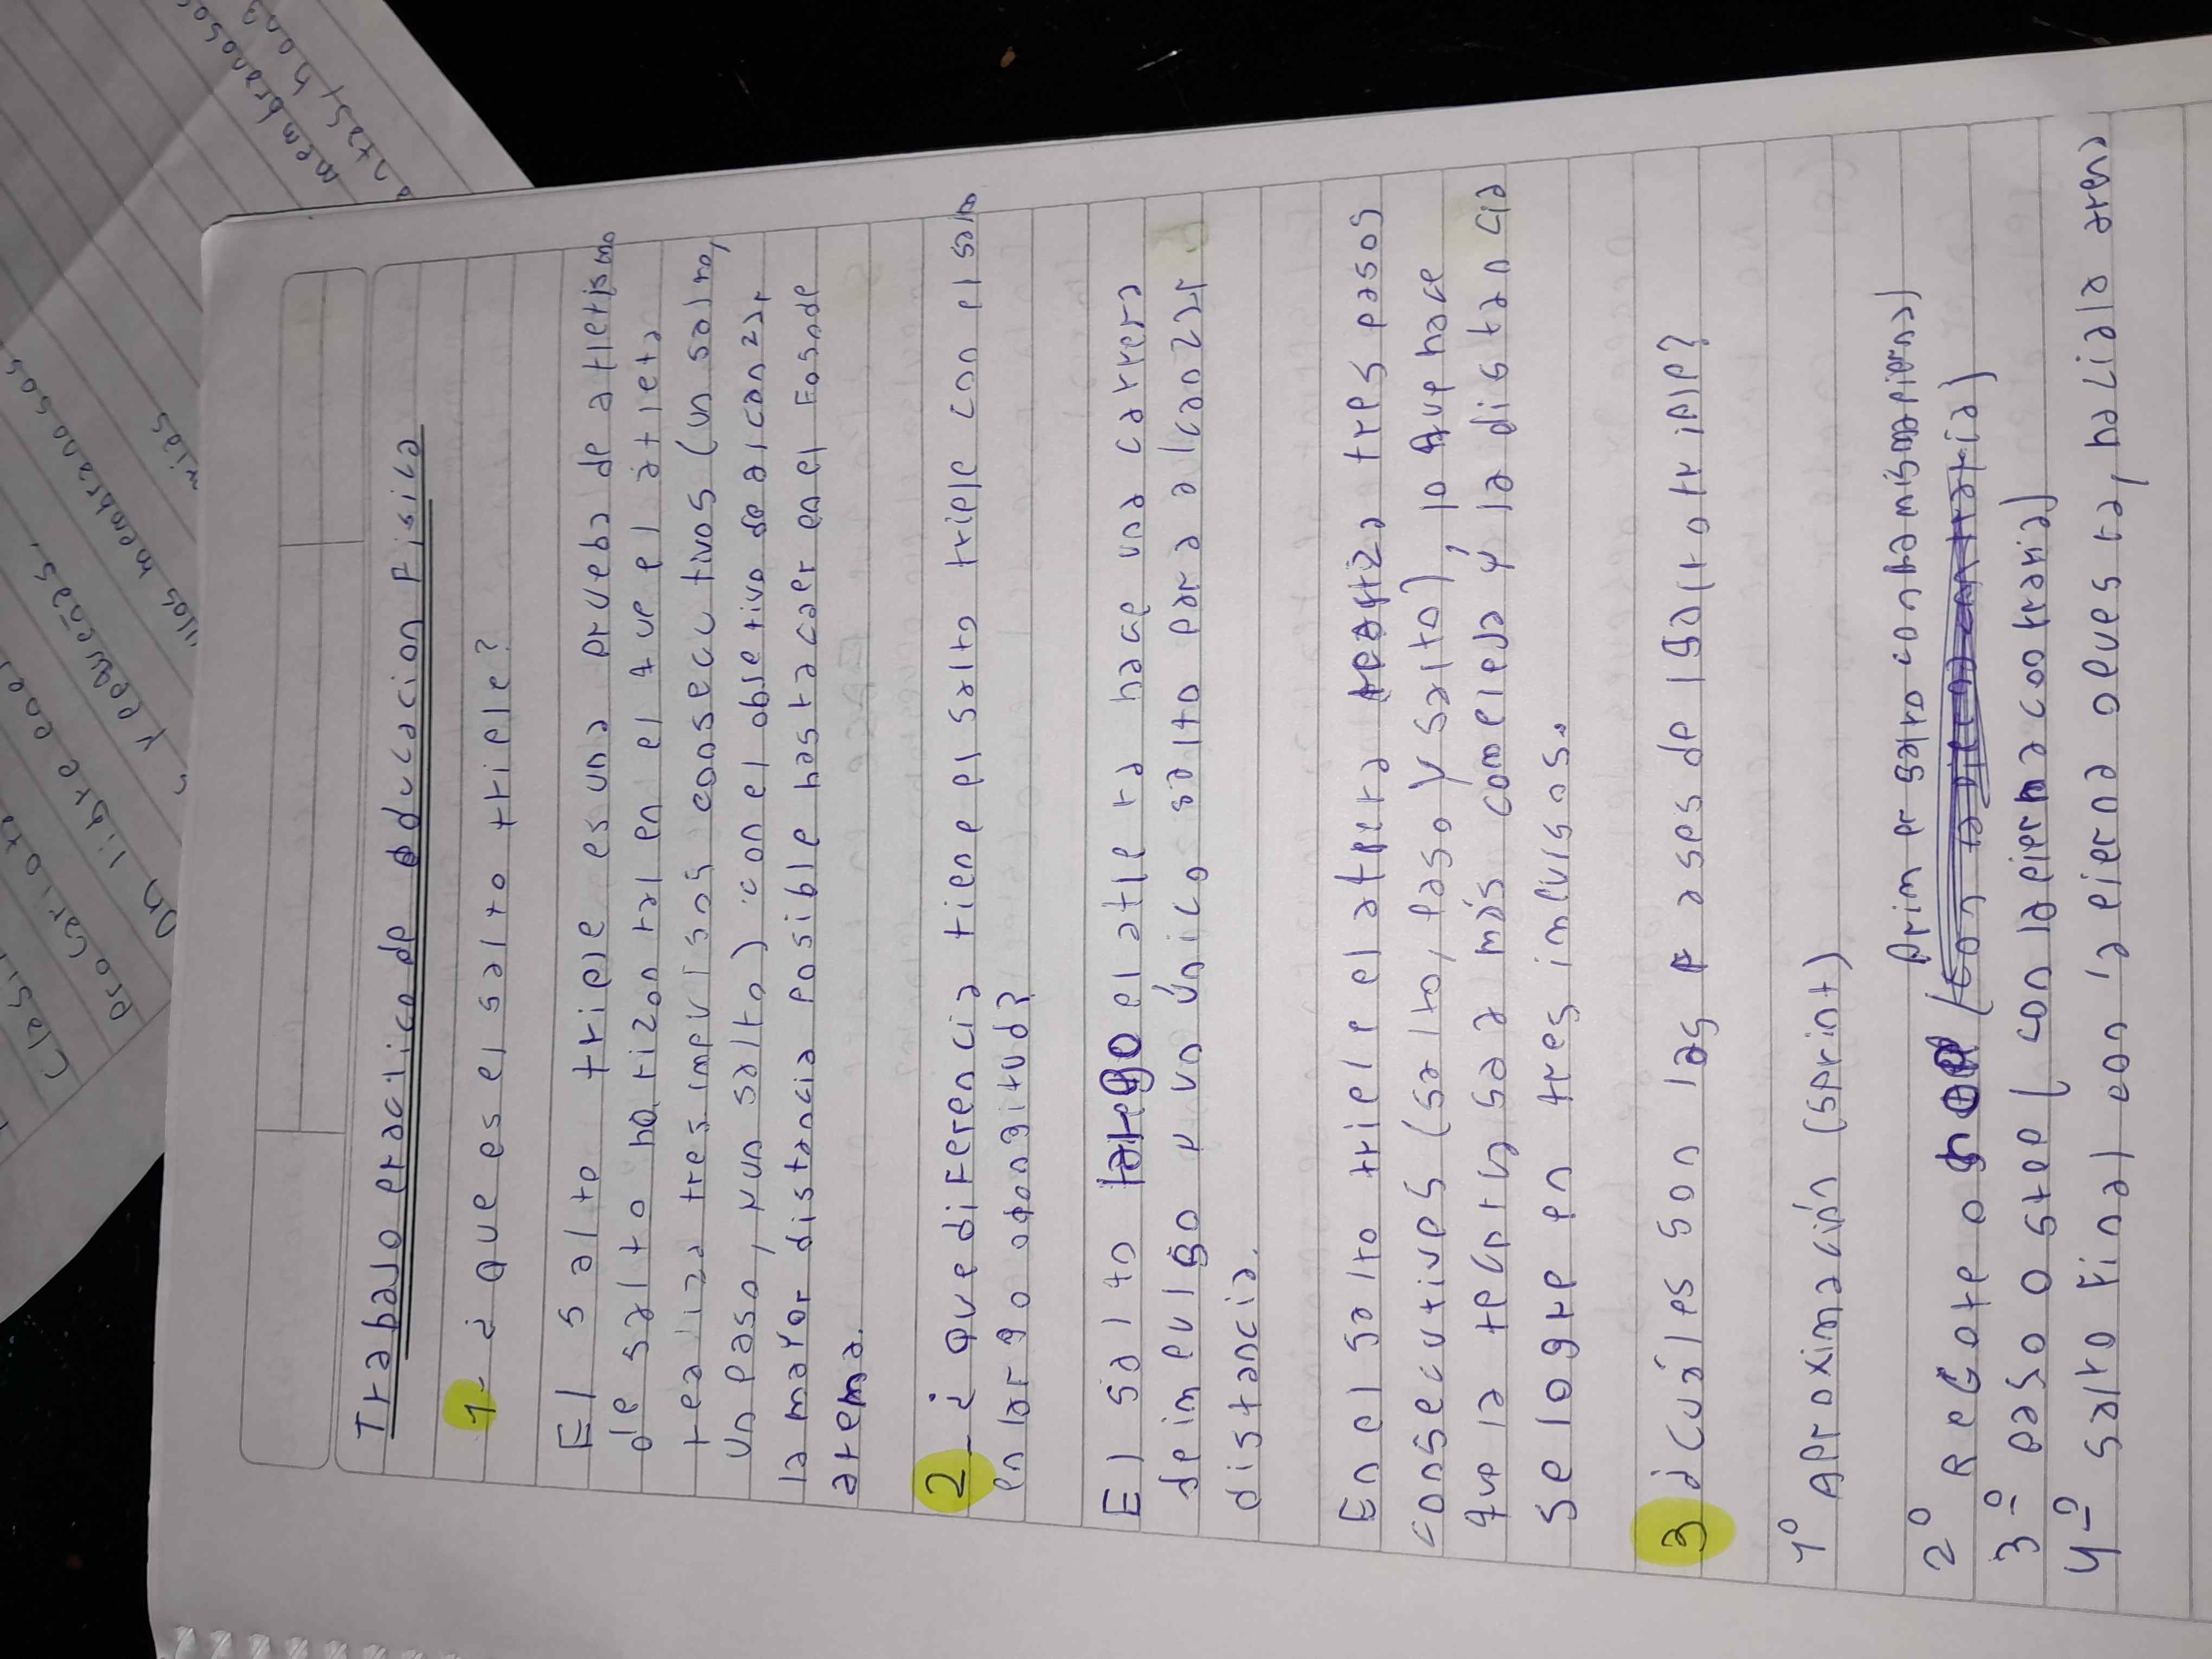 Trabajo practico de educacion Fisica
1- ¿Que es el salto triple?
El salto triple es una prueba de atletismo
de salto horizontal en el que el atleta
realiza tres impulsos consecutivos (un salto,
un paso, y un salto) con el objetivo de alcanzar
la mayor distancia posible hasta caer en el Fosode
arema.
2- ¿Que diferencia tiene el salto triple con el salto
en largo o longitud?
El salto largo el atleta hace una carrera
de impulso y un único salto para alcanzar
distancia.
En el salto triple el atleta realiza tres pasos
consecutives (salto, paso y salto), lo que hace
que la tecnica sea más compleja y la distancia
se logre en tres impulsos.
3 ¿Cuáles son las fases de 1 salto triple?
1° Aproximación (sprint)
Primer salto con la misma pierna)
2° Rebote o hop (con la pierna contraria)
3-° paso o step (con la pierna contraria)
4-° salto final con la pierna opuesta, hacia la arena
Clasi
membranosos
y pequeñas.
on libre